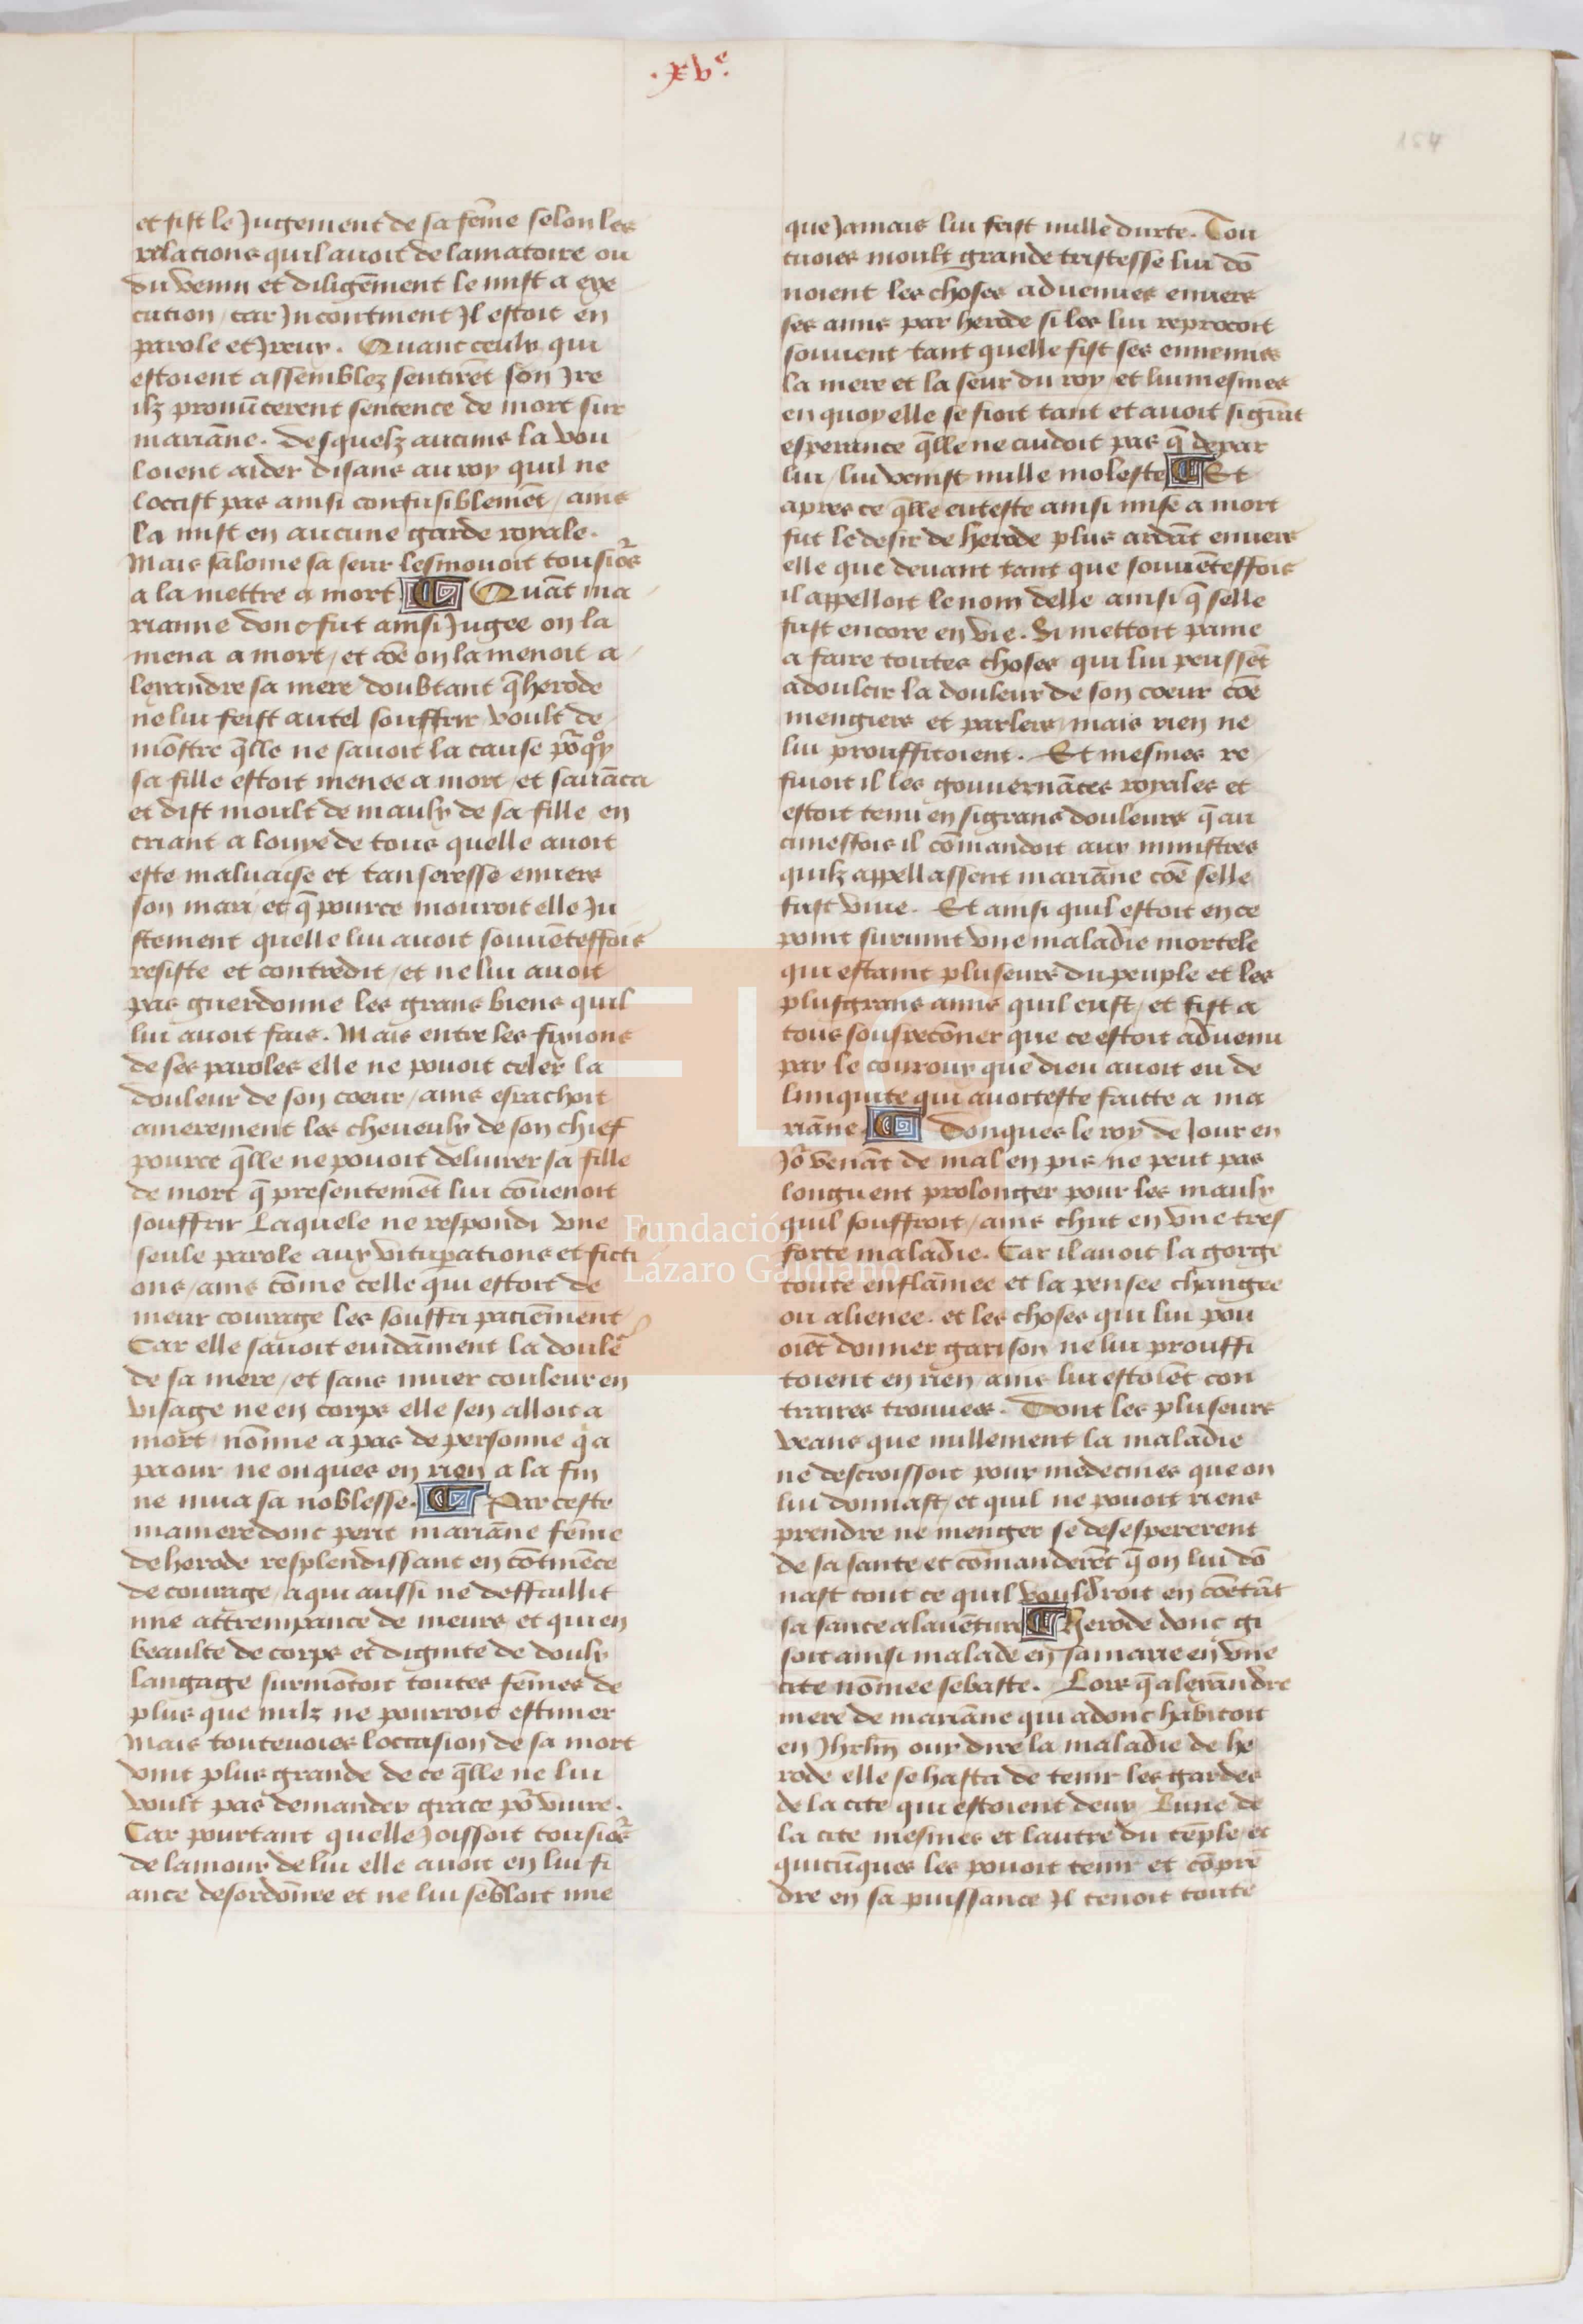 .xvᵉ.
154
et fist le Jugement de sa fēme selon les
relations quil auoit de lamatoire ou
du venin et diligēment le mist a exe
cution / car Incontinent Jl estoit en
parole et Jreux. Quant ceulx qui
estoient assemblez sentirēt son Jre
ilz pronūcerent sentence de mort sur
mariāne. Desquelz aucuns la vou
loient aider disans au roy quil ne
loccist pas ainsi confusiblemēt / ains
la mist en aucune garde royale.
Mais salome sa seur les mouoit tousiōrs
a la mettre a mort ¶ Quāt ma
rianne donc fut ainsi Jugee on la
mena a mort / et cōe on la menoit a
lexandre sa mere doubtant q̄ herode
ne lui feist autel souffrir voult de
mōstre q̄lle ne sauoit la cause pōrquoy
sa fille estoit menee a mort / et sauāca
et dist moult de maulx de sa fille en
criant a louye de tous quelle auoit
este maluaise et tanseresse enuers
son mari / et q̄ pource mouroit elle Ju
stement quelle lui auoit souuēteffois
resiste et contredit / et ne lui auoit
pas guerdonne les grans biens quil
lui auoit fais. Mais entre les fixions
de ses paroles elle ne pouoit celer la
douleur de son coeur / ains esrachoit
amerement les cheueulx de son chief
pource q̄lle ne pouoit deliurer sa fille
de mort q̄ presentemēt lui cōuenoit
souffrir Laquele ne respondi vne
seule parole aux vituperations et ficti
ons / ains cōme celle qui estoit de
meur courage les souffri paciēment
Car elle sauoit euidāment la doulēr
de sa mere / et sans muer couleur en
visage ne en corps elle sen alloit a
mort / nōmie a pas de personne q̄ a
paour ne onques en rien a la fin
ne mua sa noblesse. ¶ Par ceste
maniere donc perit mariāne fēme
de herode resplendissant en cōtinēce
de courage / a qui aussi ne deffaillit
nne attrempance de meurs / et qui en
beaulte de corps et dignite de doulx
langage surmōtoit toutes fēmes de
plus que nulz ne pourroit estimer
Mais toutenoies loccasion de sa mort
vint plus grande de ce q̄lle ne lui
voult pas demander grace pōr viure.
Car pourtant quelle Joissoit tousiōrs
de lamour de lui elle auoit en lui fi
ance desordōnee et ne lui sēbloit nne
que Jamais lui feist nulle durte. Tou
tuoies moult grande tristesse lui dō
noient les choses aduenues enuers
ses amis par herode si les lui reprocoit
souuent tant quelle fist ses ennemies
la mere et la seur du roy / et lui mesmes
en quoy elle se fioit tant et auoit si grāt
esperance q̄lle ne cuidoit pas q̄ de par
lui / lui venist nulle moleste ¶ Et
apres ce q̄lle eut este ainsi mise a mort
fut le desir de herode plus ardāt enuers
elle que deuant tant que souuēteffois
il appelloit le nom delle ainsi q̄ selle
fust encore en vie. Si mettoit paine
a faire toutes choses qui lui peussēt
adoulcir la douleur de son coeur cōe
mengiers et parlers / mais rien ne
lui prouffitoient. Et mesmes re
fuioit il les gouuernāces royales et
estoit tenu en si grans douleurs q̄ au
cuneffois il cōmandoit aux ministres
quilz appellassent mariāne cōe selle
fust viue. Et ainsi quil estoit en ce
point suruint vne maladie mortele
qui estaint pluseurs du peuple et les
plus grans amis quil eust / et fist a
tous souspeconner que ce estoit aduenu
par le courroux que dieu auoit eu de
liniquite qui auoit este faitte a ma
riāne ¶ Donques le roy de Jour en
Jōr venāt de mal en pis / ne peut pas
longuent prolonger pour les maulx
quil souffroit / ains chut en vne tres
forte maladie. Car il auoit la gorge
toute enflāmee et la pensee changee
ou alienee. et les choses qui lui pou
oiēt donner garison ne lui prouffi
toient en rien / ains lui estoiēt con
traires trouuees. Dont les pluseurs
veans que nullement la maladie
ne descroissoit pour medecines que on
lui donnast / et quil ne pouoit riens
prendre ne menger se desespererent
de sa sante et cōmanderēt q̄ on lui dō
nast tout ce quil vouldroit en cōetāt
sa sante a lauēture ¶ Herode donc gi
soit ainsi malade en samarie en vne
cite nōmee sebaste. Lors q̄ alexandre
mere de mariāne qui adonc habitoit
en Jhrlm̄ ouy dire la maladie de he
rode elle se hasta de tenir les gardes
de la cite qui estoient deux Lune de
la cite mesmes et lautre du tēple / et
quicūques les pouoit tenir et cōprē
dre en sa puissance Jl tenoit toute
Fundación
Lázaro Galdiano